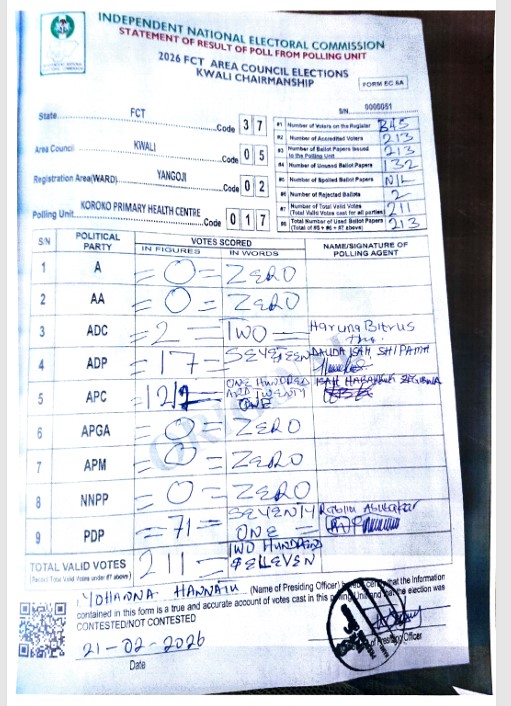 INDEPENDENT NATIONAL ELECTORAL COMMISSION
STATEMENT OF RESULT OF POLL FROM POLLING UNIT
2026 FCT AREA COUNCIL ELECTIONS
KWALI CHAIRMANSHIP
FORM EC 8A
S/N 0000051
State FCT Code 3 7
Area Council KWALI Code 0 5
Registration Area(WARD) YANGOJI Code 0 2
Polling Unit KOROKO PRIMARY HEALTH CENTRE Code 0 1 7
#1 Number of Voters on the Register 845
#2 Number of Accredited Voters 213
#3 Number of Ballot Papers Issued to the Polling Unit 213
#4 Number of Unused Ballot Papers 132
#5 Number of Spoiled Ballot Papers NIL
#6 Number of Rejected Ballots 2
#7 Number of Total Valid Votes (Total Valid Votes cast for all parties) 211
#8 Total Number of Used Ballot Papers (Total of #5 + #6 + #7 above) 213
S/N POLITICAL PARTY VOTES SCORED NAME/SIGNATURE OF POLLING AGENT
IN FIGURES IN WORDS
1 A = 0 = ZERO
2 AA = 0 = ZERO
3 ADC = 2 = TWO Haruna Bitrus
4 ADP = 17 = SEVENTEEN DAUDA ISAH SHIPAMA
5 APC ONE HUNDRED AND TWENTY ONE ISAH
6 APGA = 0 = ZERO
7 APM = 0 = ZERO
8 NNPP = 0 = ZERO
9 PDP = 71 = SEVENTY ONE = Rabiu Abubakar
TOTAL VALID VOTES 211 TWO HUNDRED ELEVEN
(Record Total Valid Votes under #7 above)
I, YOHANNA (Name of Presiding Officer) hereby certify that the information
contained in this form is a true and accurate account of votes cast in this polling Unit and that the election was
CONTESTED/NOT CONTESTED
21-02-2026
Date
Signature of Presiding Officer